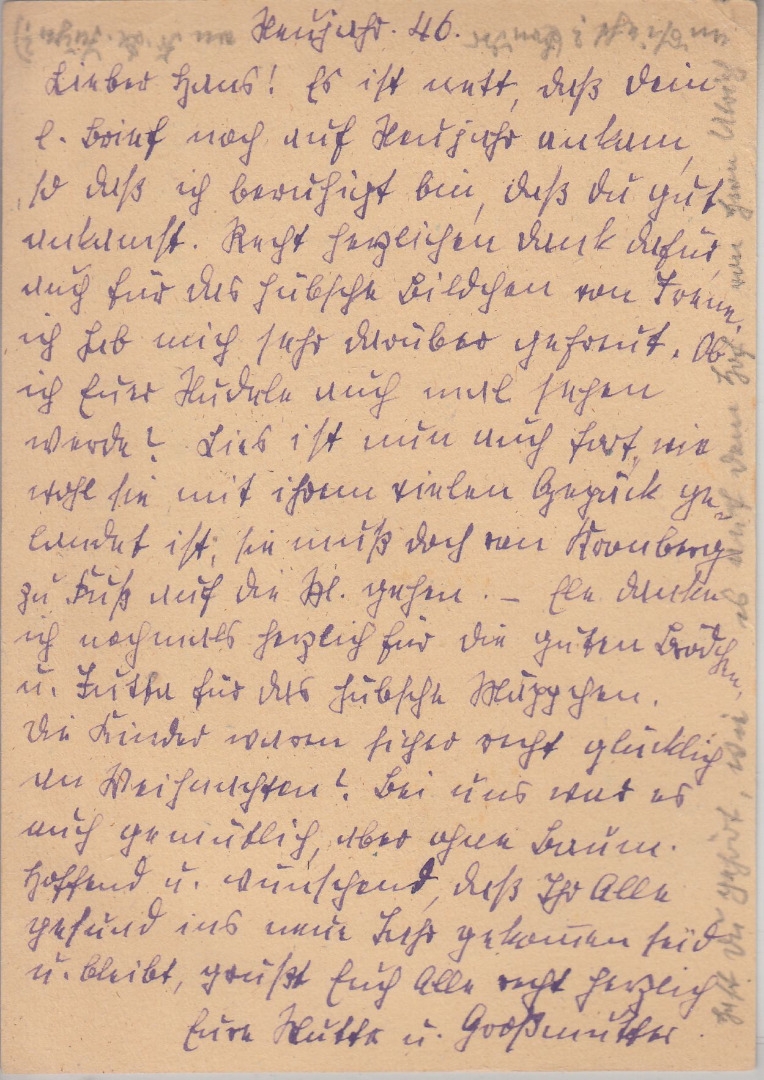 Neujahr. 46.
Lieber Hans! Es ist nett, daß Dein
l. Brief noch auf Neujahr ankam,
so daß ich beruhigt bin, daß Du gut
ankamst. Recht herzlichen Dank dafür,
auch für das hübsche Bildchen von Irene.
ich hab mich sehr darüber gefreut. Ob
ich Euer Nudele auch mal sehen
werde? Lies ist nun auch fort, wie
wohl sie mit ihrem vielen Gepäck ge-
landet ist, sie muß doch von Kronberg
zu Fuß auf die Bl. gehen. – Ele danke
ich nochmals herzlich für die guten Brödchen,
u. Jutta für das hübsche Mäppchen.
Die Kinder waren sicher recht glücklich
an Weihnachten? Bei uns war es
auch gemütlich, aber ohne Baum.
Hoffend u. wünschend, daß Ihr Alle
gesund ins neue Jahr gekommen seid
u. bleibt, grüßt Euch Alle recht herzlich
Eure Mutter u. Großmutter.
Hast Du gehört, wie es auf dem Hof von Herrn Ulrich
aussieht?